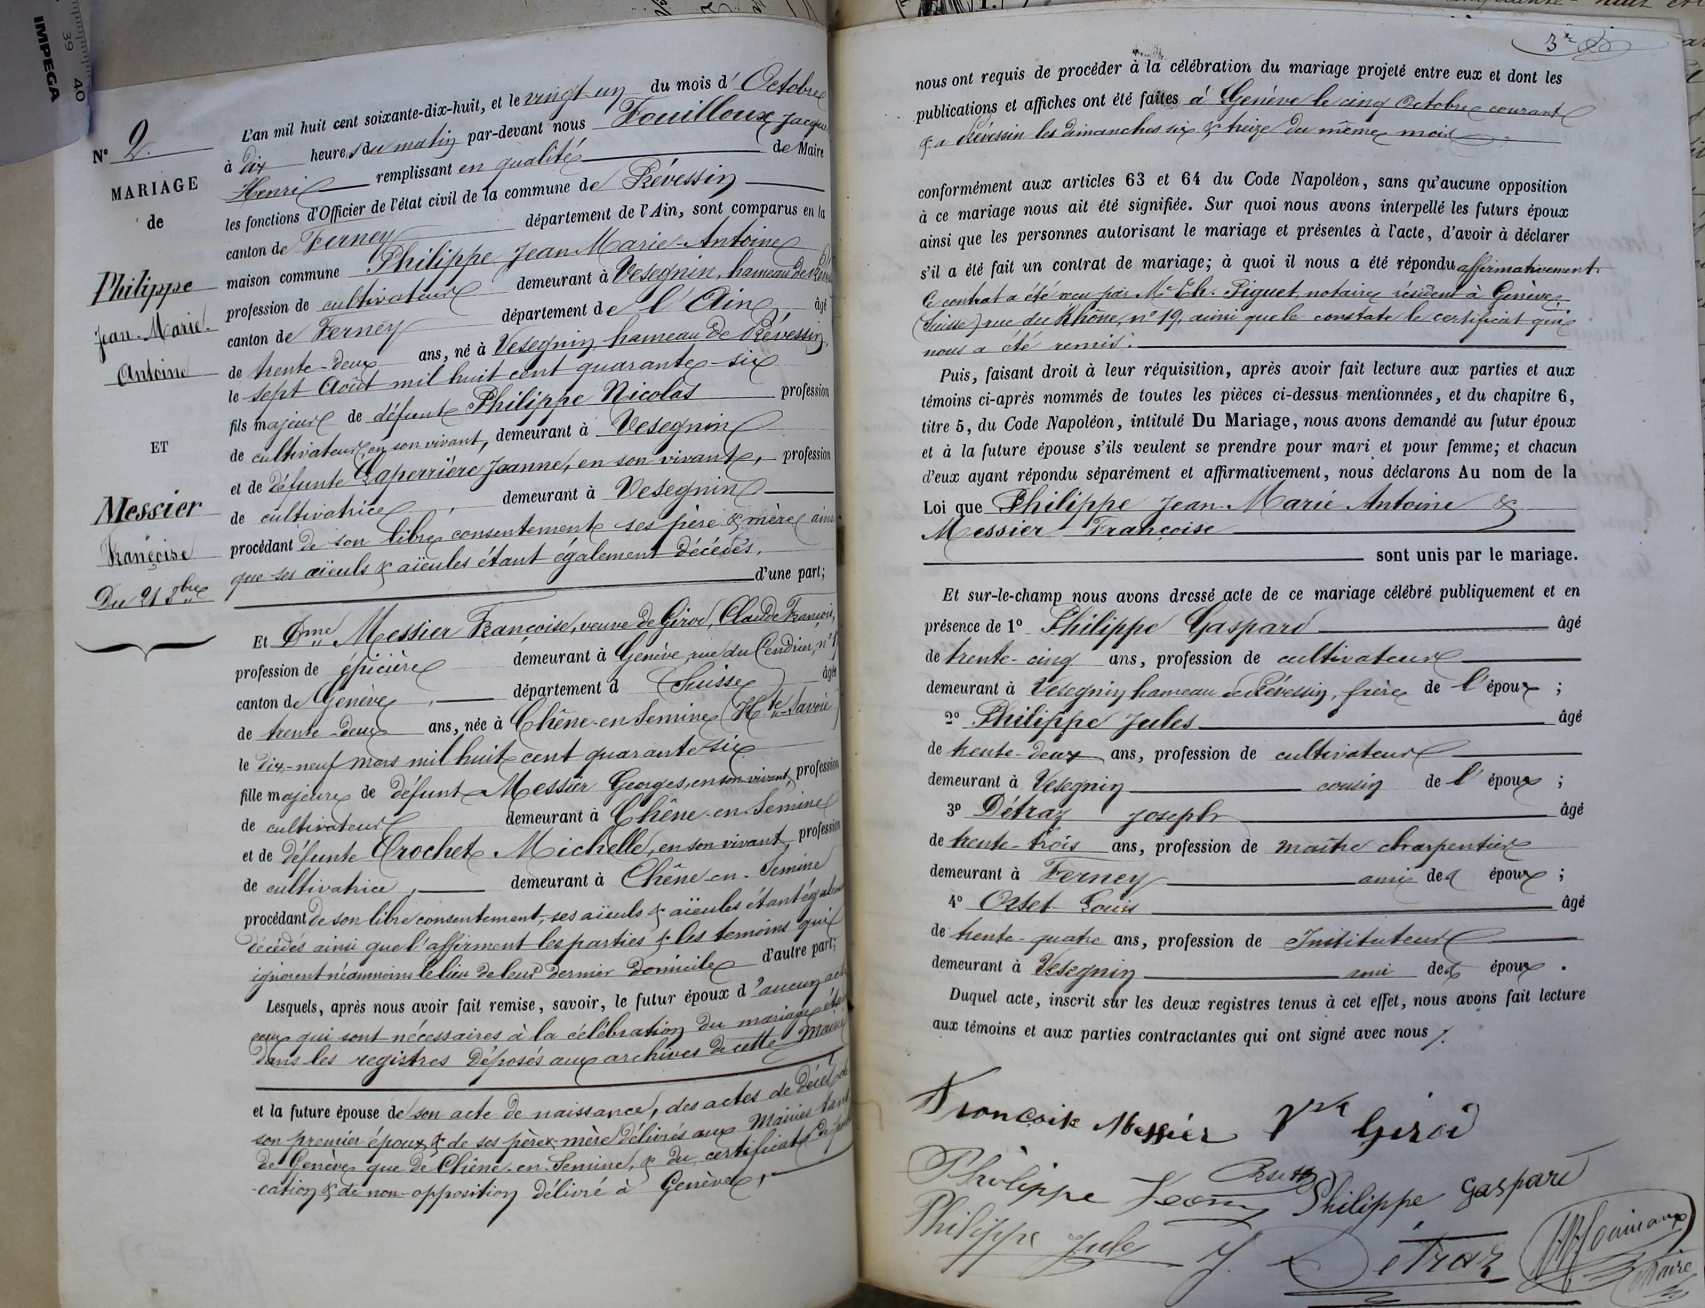 IMPEGA
39 40
N° 2.
MARIAGE
de
Philippe
Jean-Marie.
Antoine
ET
Messier
Françoise
Du 21 8bre
L'an mil huit cent soixante-dix-huit, et le vingt-un du mois d'Octobre
à dix heures du matin par-devant nous Fouilloux Jacques
Henri remplissant en qualité de Maire
les fonctions d'Officier de l'état civil de la commune de Prévessin
canton de Ferney département de l'Ain, sont comparus en la
maison commune Philippe Jean Marie-Antoine
profession de cultivateur demeurant à Vesegnin, hameau de
canton de Ferney département de l'Ain, âgé
de trente-deux ans, né à Vesegnin hameau de Prévessin,
le sept Août mil huit cent quarante-six
fils majeur de défunt Philippe Nicolas profession
de cultivateur, en son vivant, demeurant à Vesegnin
et de défunte Laperrière Jeanne, en son vivante, profession
de cultivatrice, demeurant à Vesegnin
procédant de son libre consentement ses père & mère ainsi
que ses aïeuls & aïeules étant également décédés.
d'une part;
Et Dme Messier Françoise, veuve de Girod, Claude François,
profession de épicière demeurant à Genève, rue du Cendrier, n°
canton de Genève, département d (Suisse) âgée
de trente-deux ans, née à Chêne-en-Semine (Hte-Savoie)
le dix-neuf mars mil huit cent quarante six
fille majeure de défunt Messier Georges, en son vivant, profession
de cultivateur demeurant à Chêne-en-Sémine
et de défunte Crochet Michelle, en son vivant profession
de cultivatrice, demeurant à Chêne-en-Semine
procédant de son libre consentement, ses aïeuls & aïeules étant également
décédés ainsi que l'affirment les parties & les témoins qui
ignorent néanmoins le lieu de leur dernier domicile d'autre part;
Lesquels, après nous avoir fait remise, savoir, le futur époux d'aucun acte
ceux qui sont nécessaires à la célébration du mariage
dans les registres déposés aux archives de cette Mairie
et la future épouse de son acte de naissance, des actes de décès de
son premier époux & de ses père & mère délivrés aux Mairies tant
de Genève que de Chêne-en-Semine, & du certificat de publi-
-cation & de non-opposition délivré à Genève,
3e
nous ont requis de procéder à la célébration du mariage projeté entre eux et dont les
publications et affiches ont été faites à Genève le cinq Octobre courant
& à Prévessin les dimanches six & treize du même mois
conformément aux articles 63 et 64 du Code Napoléon, sans qu'aucune opposition
à ce mariage nous ait été signifiée. Sur quoi nous avons interpellé les futurs époux
ainsi que les personnes autorisant le mariage et présentes à l'acte, d'avoir à déclarer
s'il a été fait un contrat de mariage; à quoi il nous a été répondu affirmativement
Ce contrat a été reçu par Me Ch. Piguet, notaire résident à Genève
(Suisse) rue du Rhône, n° 19, ainsi que le constate le certificat qui
nous a été remis.
Puis, faisant droit à leur réquisition, après avoir fait lecture aux parties et aux
témoins ci-après nommés de toutes les pièces ci-dessus mentionnées, et du chapitre 6,
titre 5, du Code Napoléon, intitulé Du Mariage, nous avons demandé au futur époux
et à la future épouse s'ils veulent se prendre pour mari et pour femme; et chacun
d'eux ayant répondu séparément et affirmativement, nous déclarons Au nom de la
Loi que Philippe Jean-Marie Antoine &
Messier Françoise
sont unis par le mariage.
Et sur-le-champ nous avons dressé acte de ce mariage célébré publiquement et en
présence de 1° Philippe Gaspard âgé
de trente-cinq ans, profession de cultivateur
demeurant à Vesegnin hameau de Prévessin, frère de l'époux;
2° Philippe Jules âgé
de trente-deux ans, profession de cultivateur
demeurant à Vesegnin cousin de l'époux;
3° Détraz Joseph âgé
de trente-trois ans, profession de maître charpentier
demeurant à Ferney ami des époux;
4° Orset Louis âgé
de trente-quatre ans, profession de Instituteur
demeurant à Vesegnin ami des époux.
Duquel acte, inscrit sur les deux registres tenus à cet effet, nous avons fait lecture
aux témoins et aux parties contractantes qui ont signé avec nous.
Françoise Messier Vve Girod
Philippe Jean Orset Philippe Gaspard
Philippe Jules J. Détraz
Maire